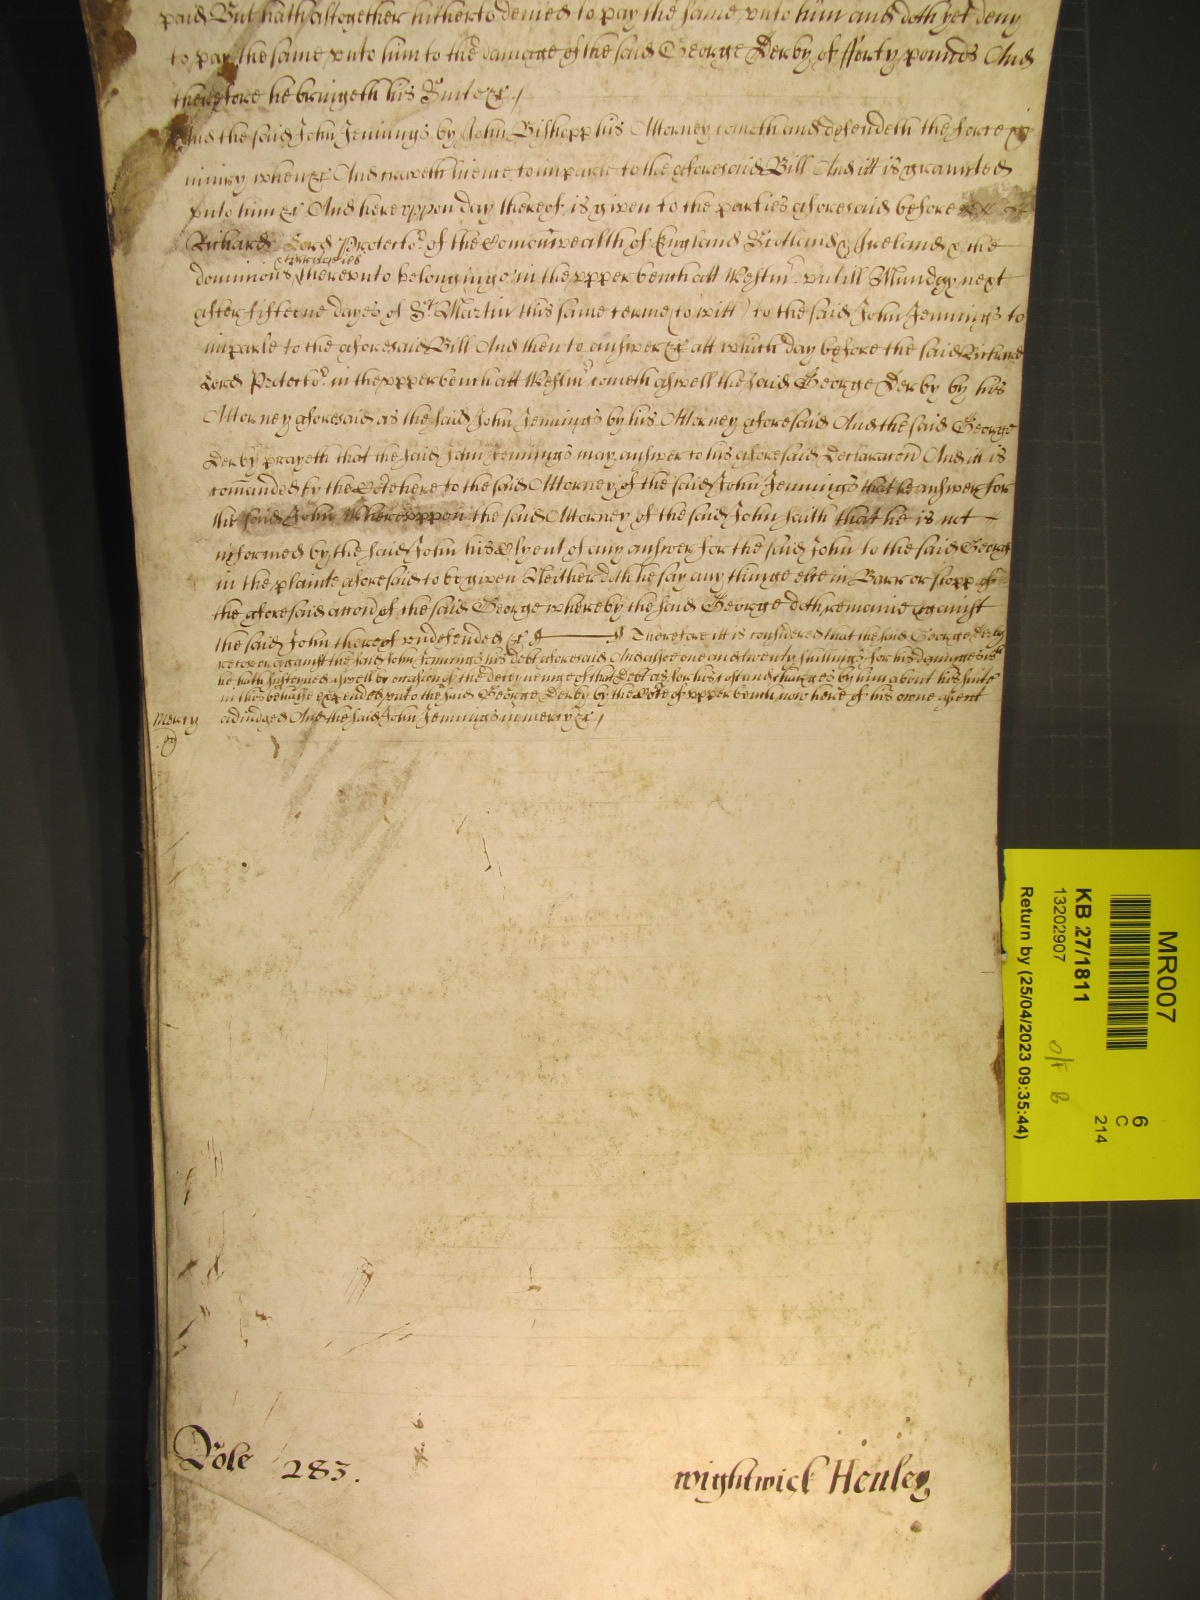 paid But hath altogether hitherto denied to pay the same vnto him and doth yet deny
to pay the same vnto him to the damage of the said George Derby of fforty pounds And
therefore he bringeth his Suite &c /
And the said John Jennings by John Bishopp his Attorney cometh and defendeth the force &
iniury when &c And craveth licence to imparle to the aforesaid Bill And itt is graunted
vnto him &c And herevppon day thereof is given to the parties aforesaid before
Richard Lord Protector of the Comonwealth of England Scotland & Ireland & the
territories
dominions therevnto belonging in the vpper bench att Westmr vntill Munday next
after fifteene dayes of St Martin this same terme (to witt) to the said John Jennings to
imparle to the aforesaid Bill And then to answer &c att which day before the said Richard
Lord Protector in the vpper bench att Westmr cometh aswell the said George Derby by his
Attorney aforesaid as the said John Jennings by his Attorney aforesaid And the said George
Derby prayeth that the said John Jennings may answer to his aforesaid Declaracon And itt is
comanded by the Corte here to the said Attorney of the said John Jennings that he answer for
the said John Wherevppon the said Attorney of the said John saith that he is not
informed by the said John his Clyent of any answer for the said John to the said George
in the plainte aforesaid to be given Neither doth he say any thinge else in Barr or stopp of
the aforesaid accon of the said George whereby the said George doth remaine against
the said John thereof vndefended &c Therefore itt is considered that the said George Derby
recover against the said John Jennings his debt aforesaid And alsoe one and twenty shillings for his damages wch
he hath susteined aswell by occasion of the deteyneinge of that Debt as for his costs and charges by him about his suite
in this behalfe expended vnto the said George Derby by the Corte of vpper bench now here of his owne assent
Mercy
adiudged And the said John Jennings in mercy &c /
Dole 283.
wightwick Henley
MR007
KB 27/1811
13202907
Return by (25/04/2023 09:35:44)
6
C
214